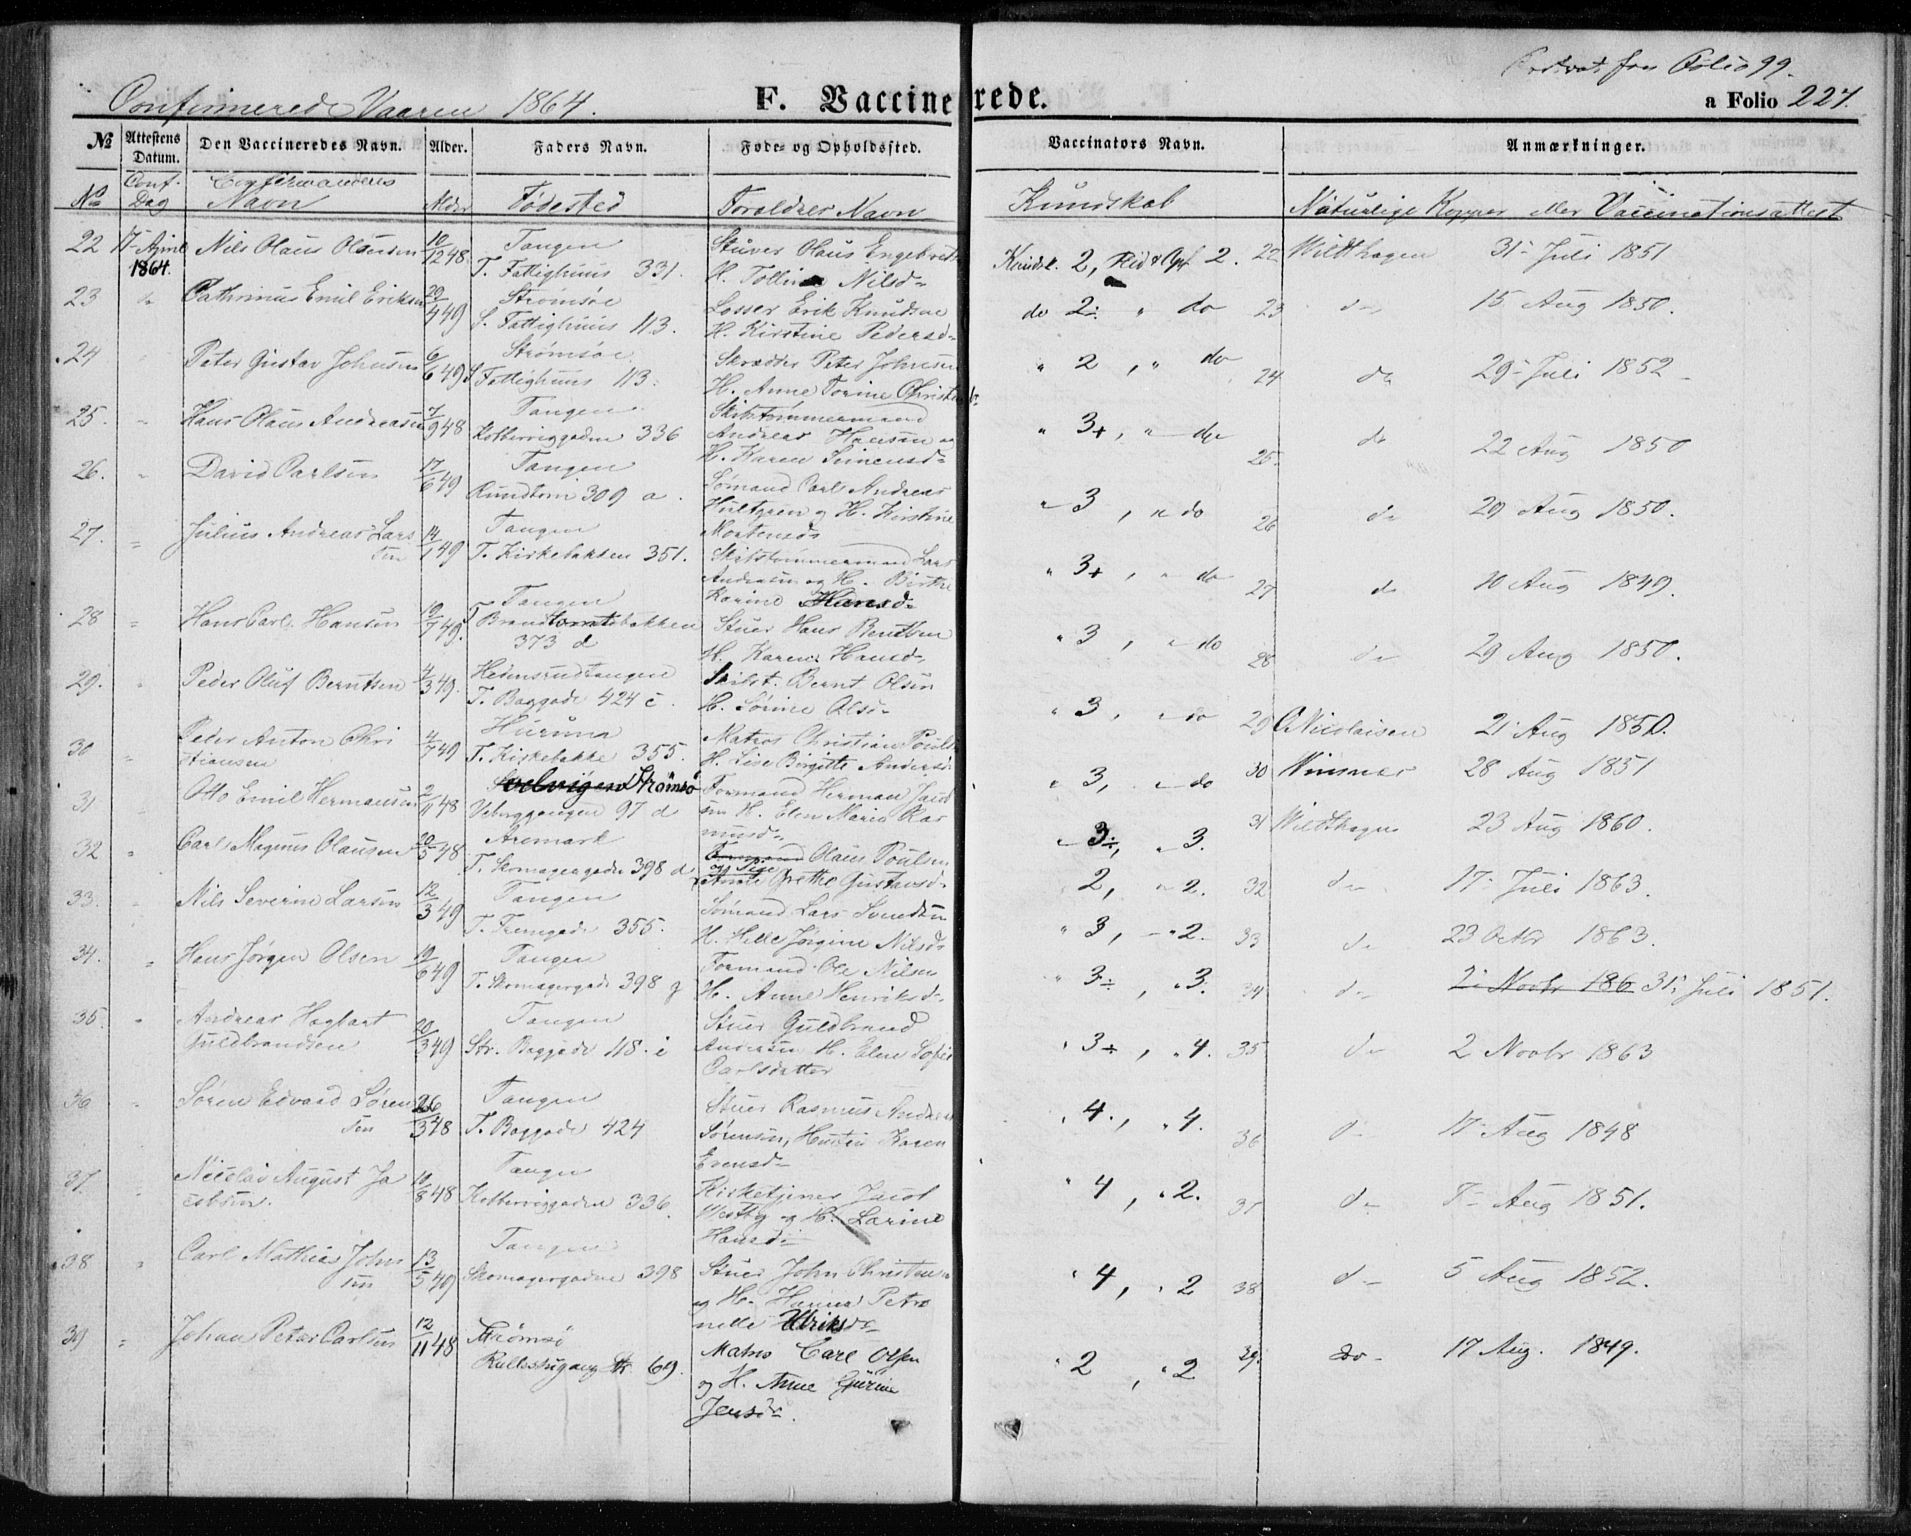 Confirmerede Vaaren 1864.
F. Vaccinerede.
fra Folio 99.
a Folio 227.
№ Attestens Datum. Den Vaccineredes Navn. Alder. Faders Navn. Føde- og Opholdssted. Vaccinators Navn. Anmærkninger.
No Conf. Dag Confirmandens Navn Alder Fødested Forældres Navn Kundskab Naturlige Kopper eller Vaccinationsattest
22 17 April 1864. Nils Olaus Olausen 10/12 48 Tangen T. Fattighuus 331. Stuver Olaus Engebrets H. Nilsd. Kundsk. 2, Flid & Opf 2. 22 Wildthagen 31 Juli 1851
23 do Cathrinus Emil Eriksen 20/4 49 Strømsøe S. Fattighuus 113. Losser Erik Knudsen H. Kirstine Pedersd. do 2÷ " do 23 do 15 Aug 1850.
24 " Peter Gustav Johnsen 6/6 49 Strømsøe S. Fattighuus 113. Skrædder Peter Johnsen H. Anne Torine Christensd. " 2, " do 24 do 29 Juli 1852
25. " Hans Olaus Andreasen 7/9 48 Tangen 336 Skibstømmermand Andreas Hansen og H. Karen Simensd. " 3+, " do 25. do 22 Aug 1850
26. " David Carlsen 17/6 49 Tangen Rundtom 309 a. Sømand Carl Andreas Hultgren og H. Kirstine Mortensd. " 3, " do 26 do 29 Aug 1850.
27. " Julius Andreas Larsen 14/1 49 Tangen T. Kirkebakken 351. Skibstømmermand Lars Andersen og H. Birthe Karine Hansd. " 3+, " do 27 do 10 Aug 1849.
28 " Hans Carl Hansen 19/7 49. Tangen T. 373 d Stuer Hans Bentsen H. Karen Hansd. " 3, " do 28 do 29 Aug 1850.
29. " Peder Oluf Berntsen 4/3 49. Hedensrudtangen T. Baggade 424 c. Skibst. Bernt Olsen H. Sørine Olsd. " 3, " do 29 C Nicolaisen 21 Aug 1850.
30 " Peder Anton Christiansen 4/7 49 Hurum T. Kirkebakke 355. Matros Christian Pouls H. Lise Birgitte Andersd. " 3, " do 30 Winsnes 28 Aug 1851
31 Otto Emil Hermansen 2/11 48 Strømsø 97 d Formand Herman Jacobsen H. Elen Maria Rasmusd. " 3÷, " 3. 31 Wildthagen 23 Aug 1860.
32 " Carl Magnus Olausen 20/5 48 Aremark T. Skomagergaden 398 d Formand Olaus Poulsen og Pige Anne Grethe Gustavsd. 2, " 2. 32 do 17 Juli 1863.
33. " Nils Severin Larsen 12/3 49 Tangen T. Fremgade 355. Sømand Lars Svendsen H. Helle Jørgine Nilsd. " 3, " 2. 33 do 23 Octbr 1863.
34. " Hans Jørgen Olsen 19/6 49 Tangen T. Skomagergade 398 g Formand Ole Nilsen H. Anne Henriksd. " 3÷, " 3. 34 do 2 Novbr 186 31 Juli 1851.
35. " Andreas Hagbart Guldbrandsen 20/3 49 Tangen Str. Baggade 118. i Stuer Guldbrand Andersen H. Elen Sofie Carlsdatter " 3+, " 4. 35 do 2 Novbr 1863
36 " Søren Edvard Sørensen 26/3 48 Tangen T. Baggade 424 Stuer Rasmus Andreas Sørensen, Hustru Karen Evensd. " 4., " 4. 36 do 17 Aug 1848
37. " Nicolai August Jacobsen. 10/8 48 Tangen 336. Kirketjener Jacob Westby og H. Larine Hansd. " 4, " 2. 37 do 8 Aug 1851.
38 " Carl Mathias Johnsen 13/5 49 Tangen Skomagergaden 398 Stuer John Christensen og H. Hanna Petronelle Ulriksd. " 4, " 2 38 do 5 Aug 1852.
39 " Johan Peter Carlsen 12/11 48 Strømsø Str. 69. Matros Carl Olsen og H. Anne Gurine Jensd. " 2, " 2 39. do 17 Aug. 1849.